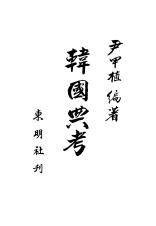 尹甲植 編著
韓國典考
東明社刊